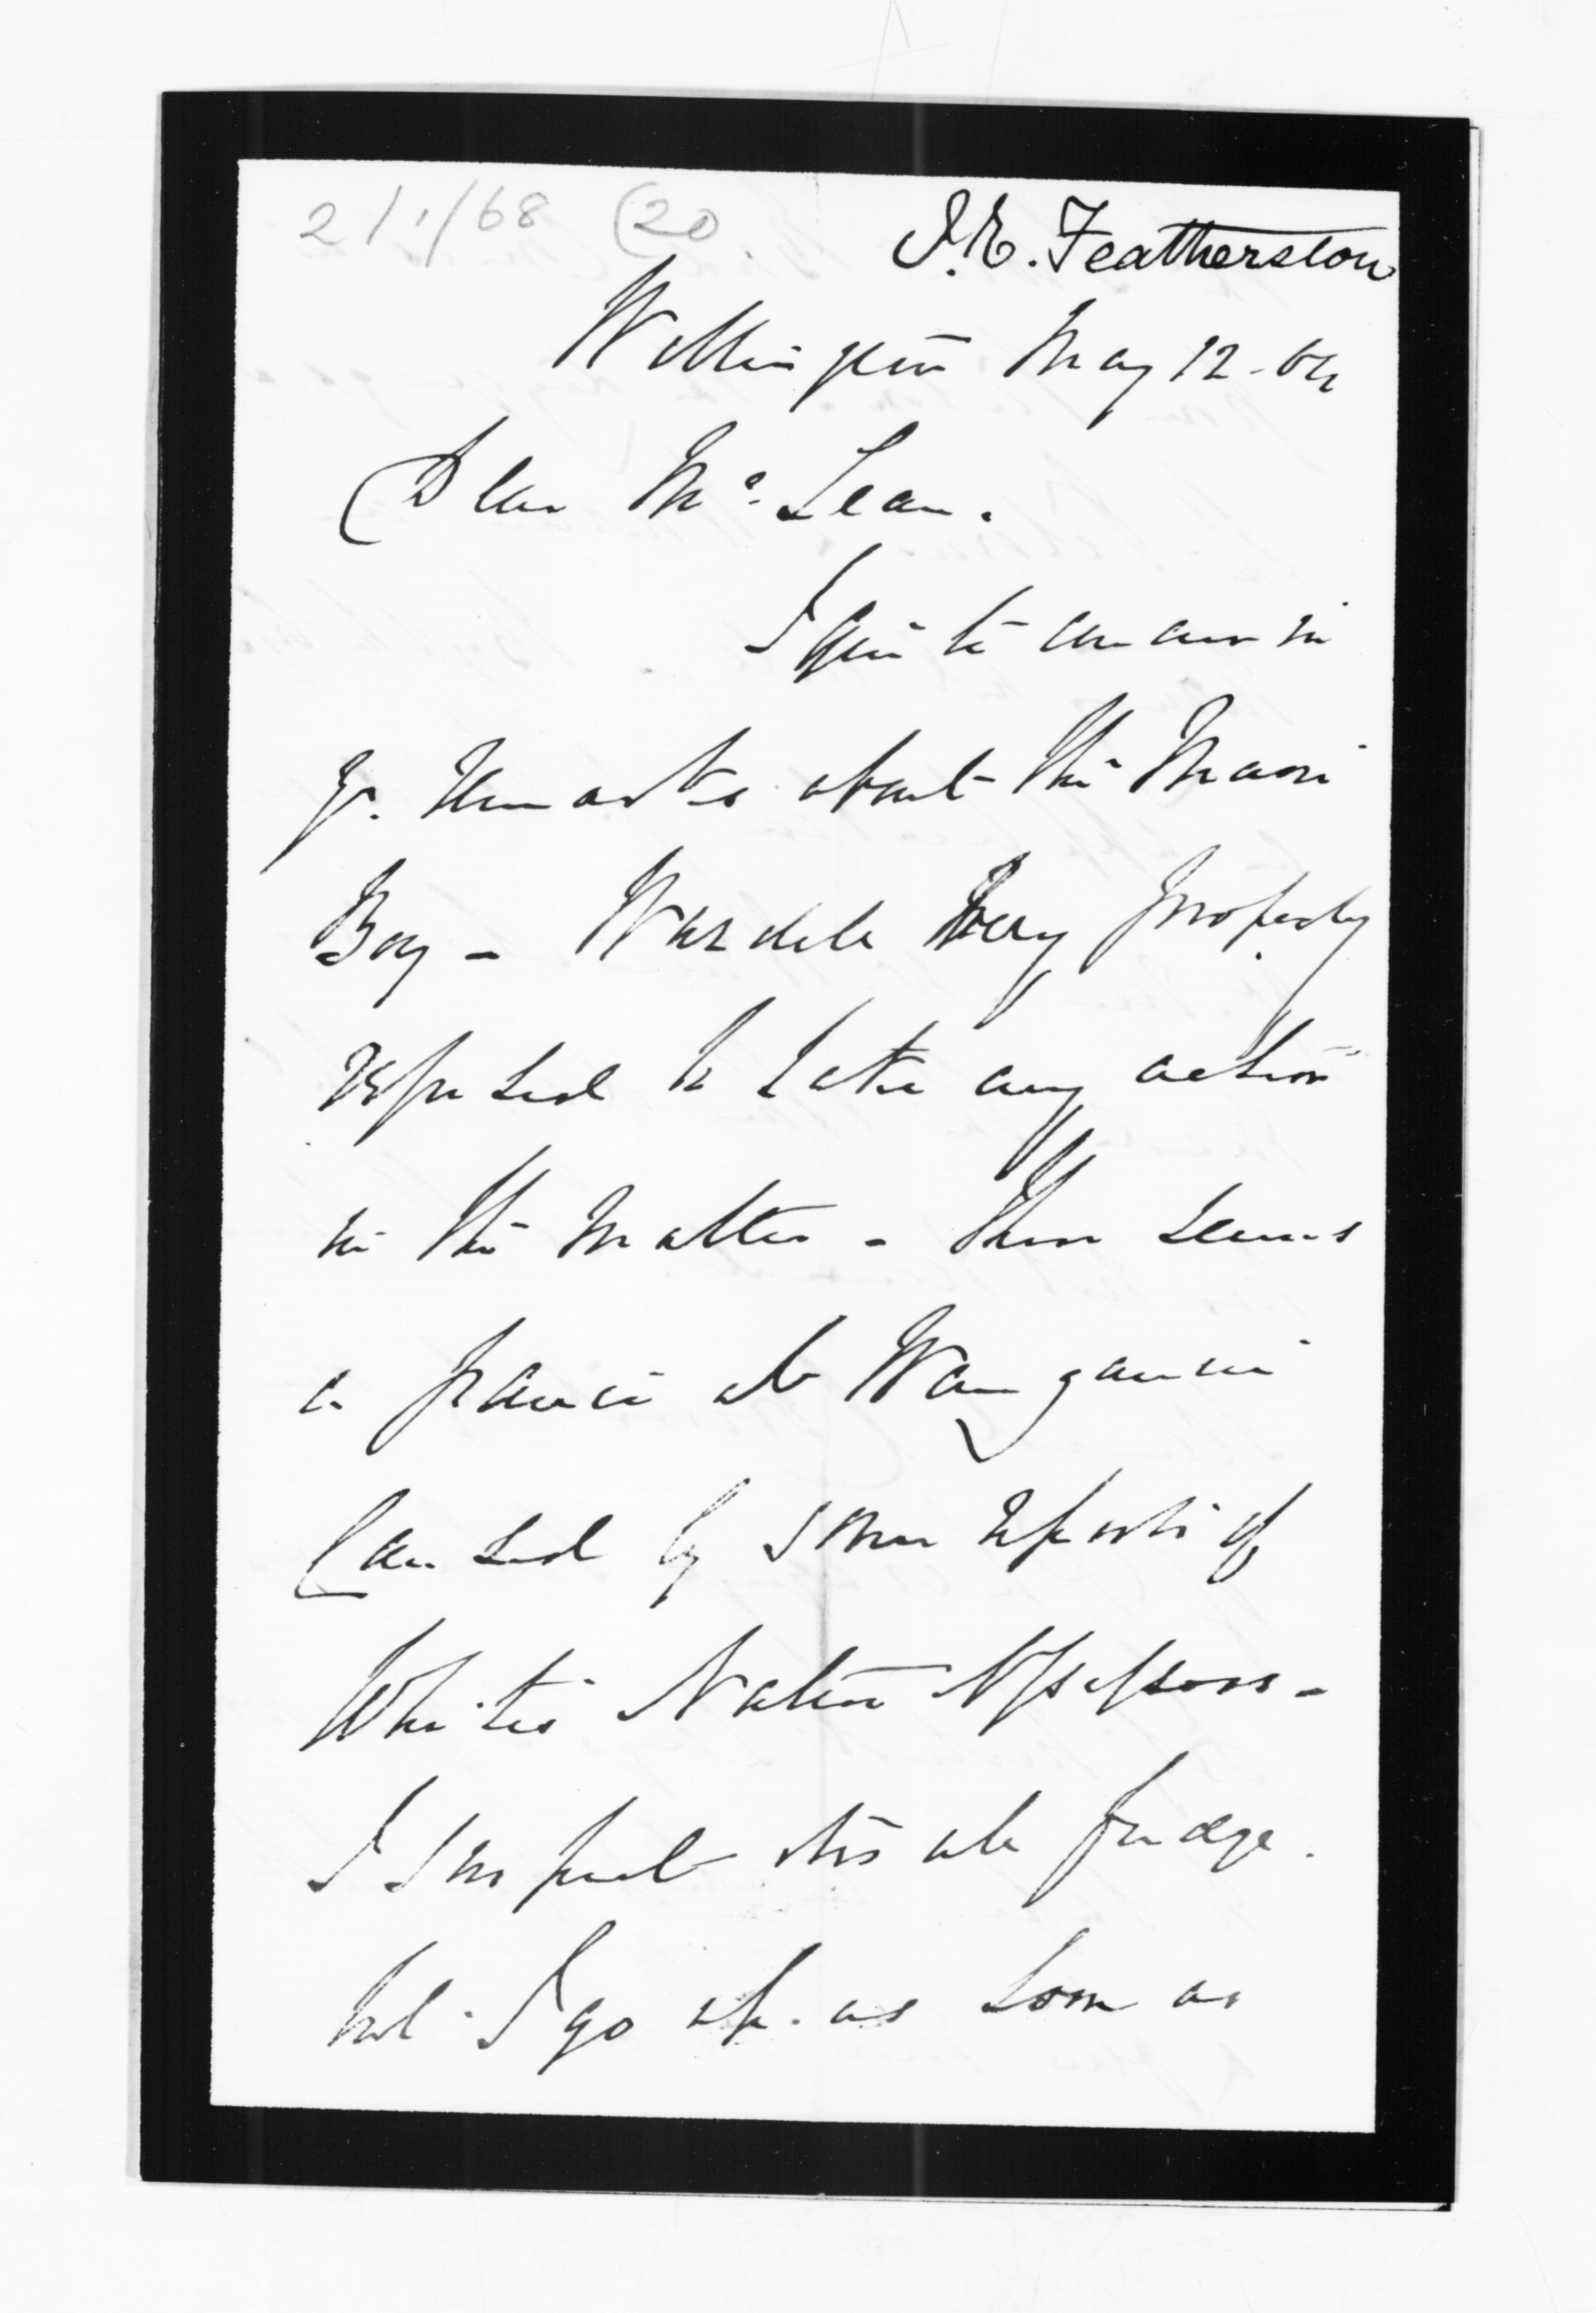 2/1/68 (20
I.E. Featherston
Wellington May 12 - 64
Dear McLean.
I quite concur in
yr. remarks about the Maori
Boy - Wardell very properly
refused to take any action
in the matter - There seems
a panic at Wanganui
caused by some reports of
White's Native
I suspect it's all fudge.
but I go up. as soon as